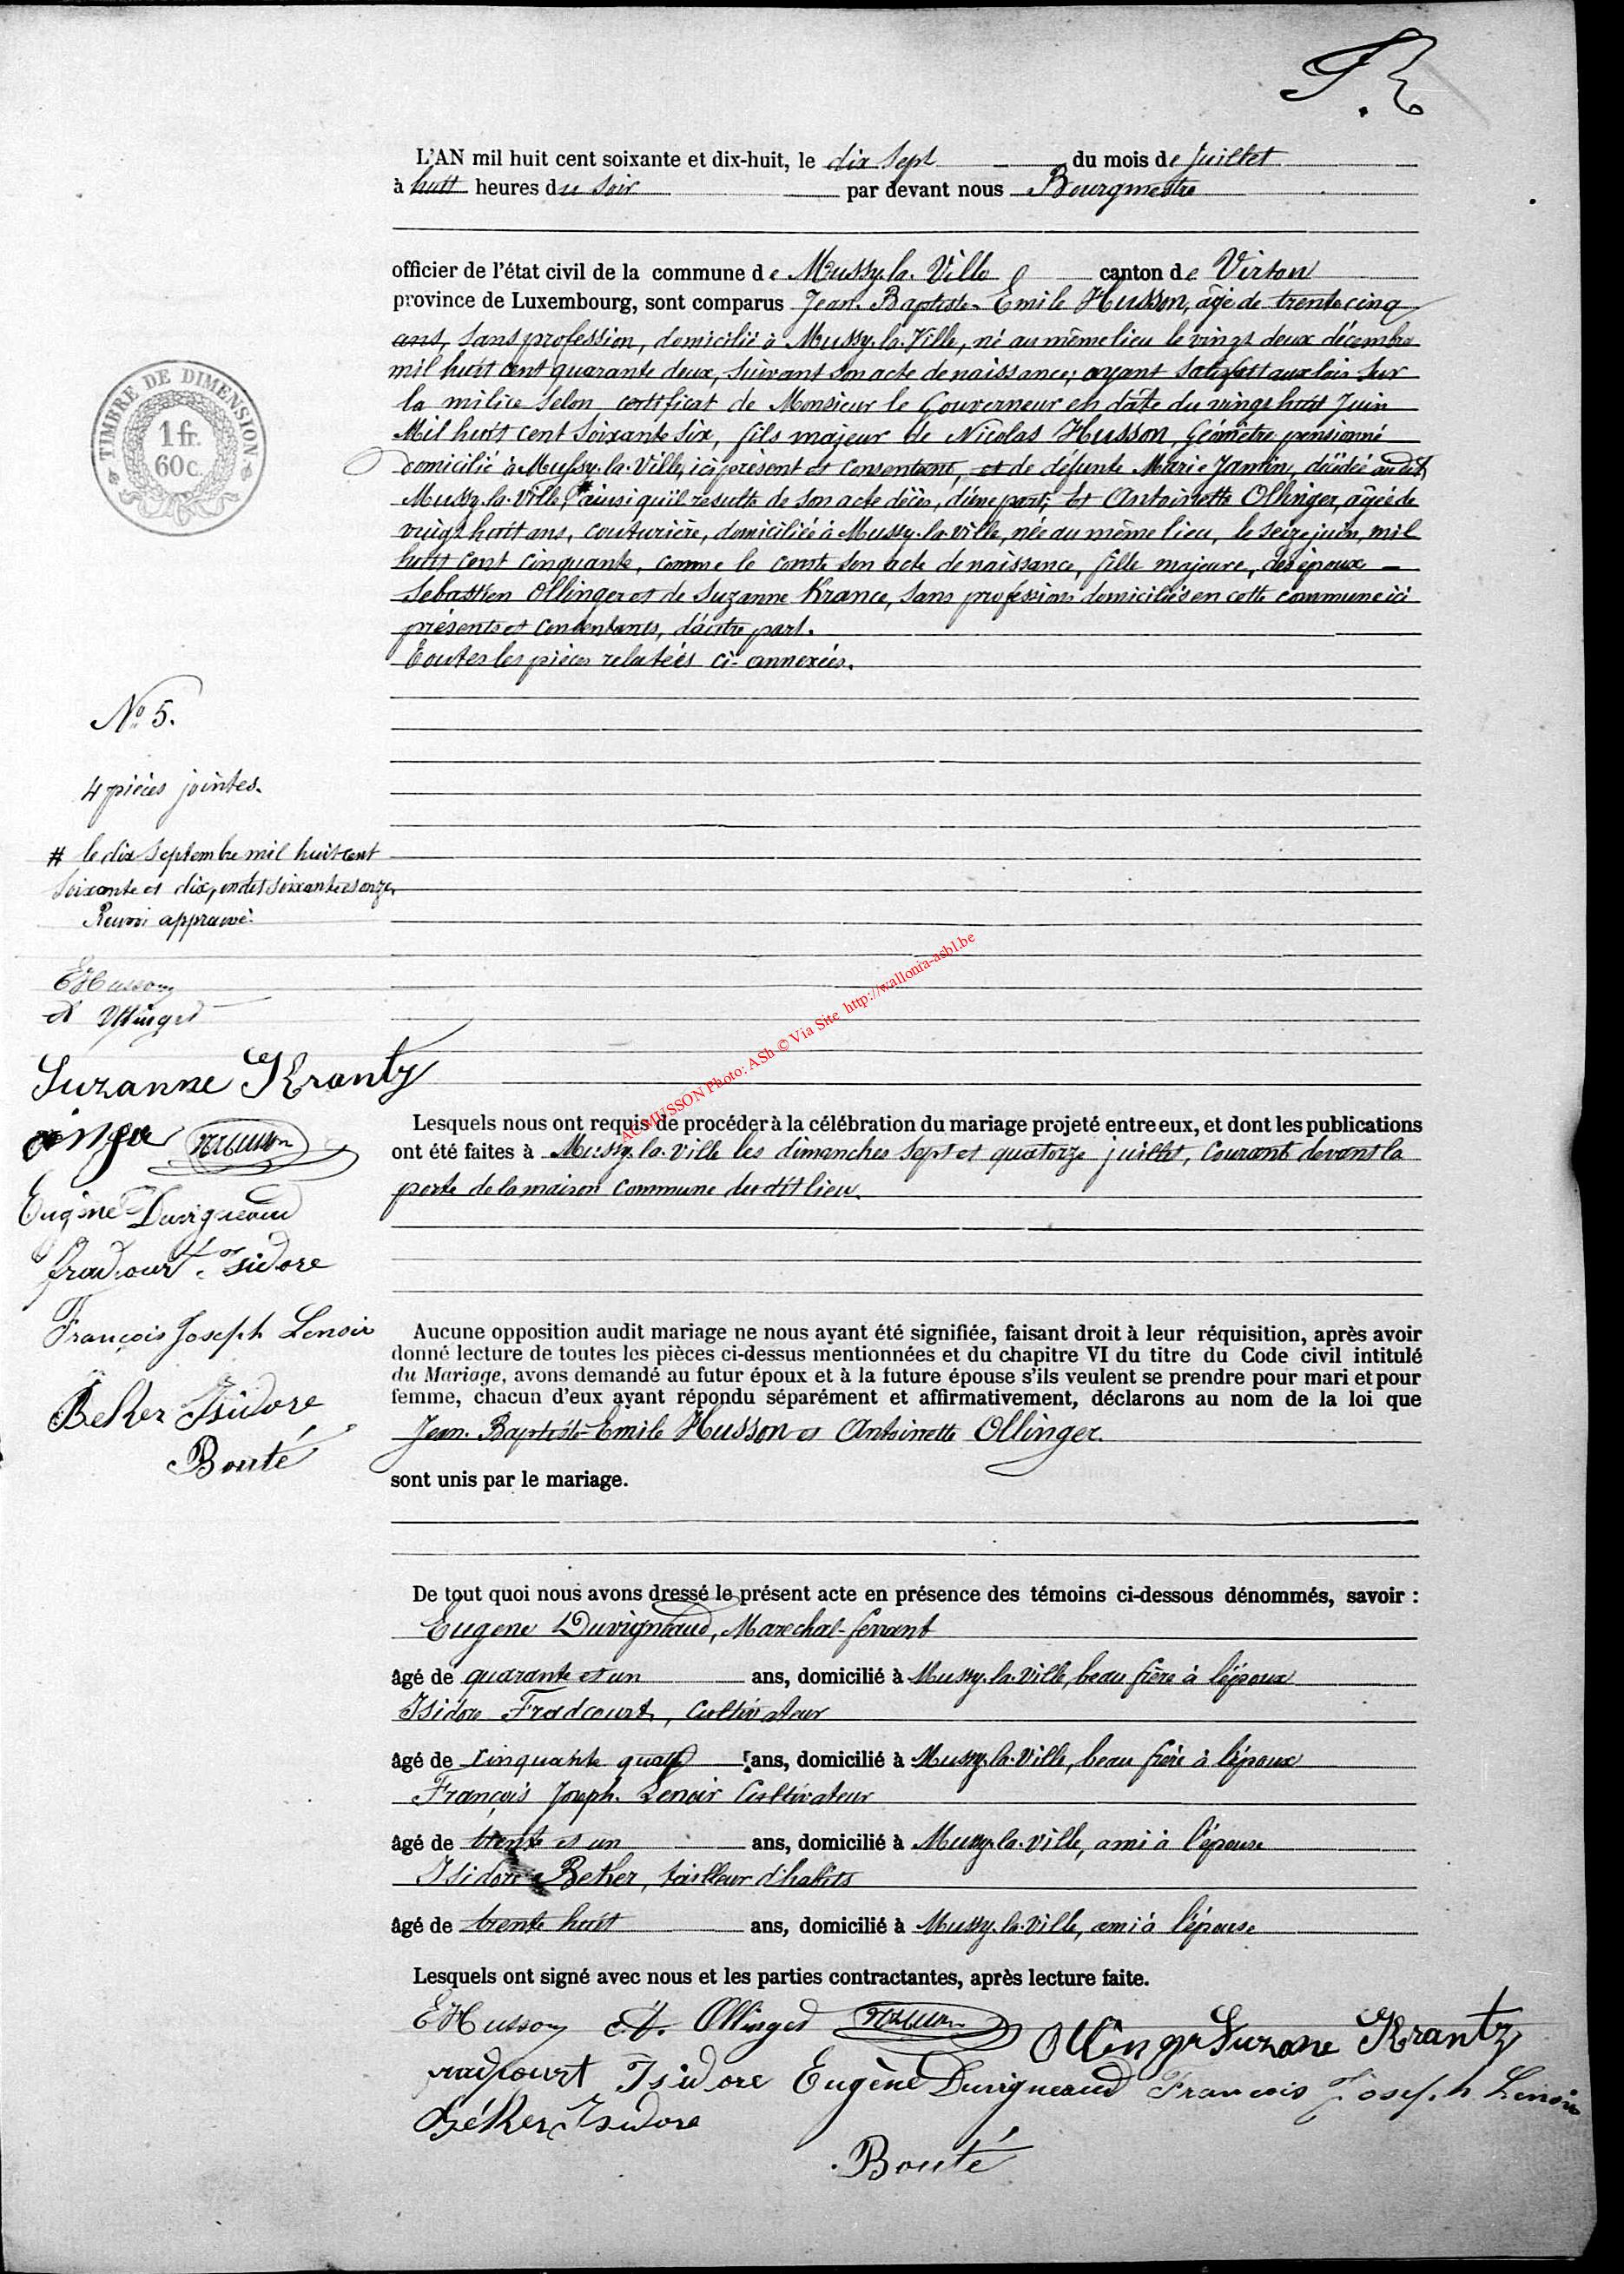 L'AN mil huit cent soixante et dix-huit, le dix sept du mois de Juillet
à huit heures du soir par devant nous Bourgmestre
officier de l'état civil de la commune de Mussy-la-Ville canton de Virton
province de Luxembourg, sont comparus Jean-Baptiste-Emile Husson, âgé de trente cinq
ans, sans profession, domicilié à Mussy-la-Ville, né au même lieu le vingt deux décembre
mil huit cent quarante deux, suivant son acte de naissance; ayant satisfait aux lois sur
la milice selon certificat de Monsieur le Gouverneur en date du vingt huit Juin
Mil huit cent soixante six, fils majeur de Nicolas Husson, Géomètre pensionné
domicilié à Mussy-la-Ville, ici présent et consentant, et de défunte Marie Jamin, décédée audit
Mussy-la-Ville, # ainsi qu'il resulte de son acte décès, d'une part; Et Antoinette Ollinger, âgée de
vingt huit ans, couturière, domiciliée à Mussy-la-Ville, née au même lieu, le seize juin, mil
huit cent cinquante, comme le conste son acte de naissance, fille majeure, des époux
Sebastien Ollinger et de Suzanne Krance, sans profession domiciliés en cette commune ici
présents et consentants, d'autre part.
Toutes les pièces relatées ci-annexées.
TIMBRE DE DIMENSION
1 fr.
60 c.
No 5.
4 pièces jointes.
# le dix septembre mil huit cent
soixante et dix, on dit soixante et onze,
Renvoi approuvé.
E Husson
A Ollinger
Suzanne Krantz
NHusson
Eugène Duvigneaud
fradcourt Isidore
François Joseph Lenoir
Beker Isidore
Bouté
Lesquels nous ont requis de procéder à la célébration du mariage projeté entre eux, et dont les publications
ont été faites à Mussy-la-Ville les dimanches sept et quatorze juillet, courant devant la
porte de la maison commune du dit lieu.
Aucune opposition audit mariage ne nous ayant été signifiée, faisant droit à leur réquisition, après avoir
donné lecture de toutes les pièces ci-dessus mentionnées et du chapitre VI du titre du Code civil intitulé
du Mariage, avons demandé au futur époux et à la future épouse s'ils veulent se prendre pour mari et pour
femme, chacun d'eux ayant répondu séparément et affirmativement, déclarons au nom de la loi que
Jean-Baptiste-Emile Husson et Antoinette Ollinger.
sont unis par le mariage.
De tout quoi nous avons dressé le présent acte en présence des témoins ci-dessous dénommés, savoir :
Eugene Duvigneaud, Marechal-ferrant
âgé de quarante et un ans, domicilié à Mussy-la-Ville, beau frère à l'époux
Isidore Fradcourt, Cultivateur
âgé de cinquante quatre ans, domicilié à Mussy-la-Ville, beau frère à l'époux
François Joseph Lenoir Cultivateur
âgé de trente et un ans, domicilié à Mussy-la-Ville, ami à l'épouse
Isidore Beker, tailleur d'habits
âgé de trente huit ans, domicilié à Mussy-la-Ville, ami à l'épouse
Lesquels ont signé avec nous et les parties contractantes, après lecture faite.
E Husson A. Ollinger NHusson Ollinger Suzane Krantz
fradcourt Isidore Eugène Duvigneaud François Joseph Lenoir
Béker Isidore
Bouté
ACMUSSON Photo: ASh © Via Site http://wallonia-asbl.be